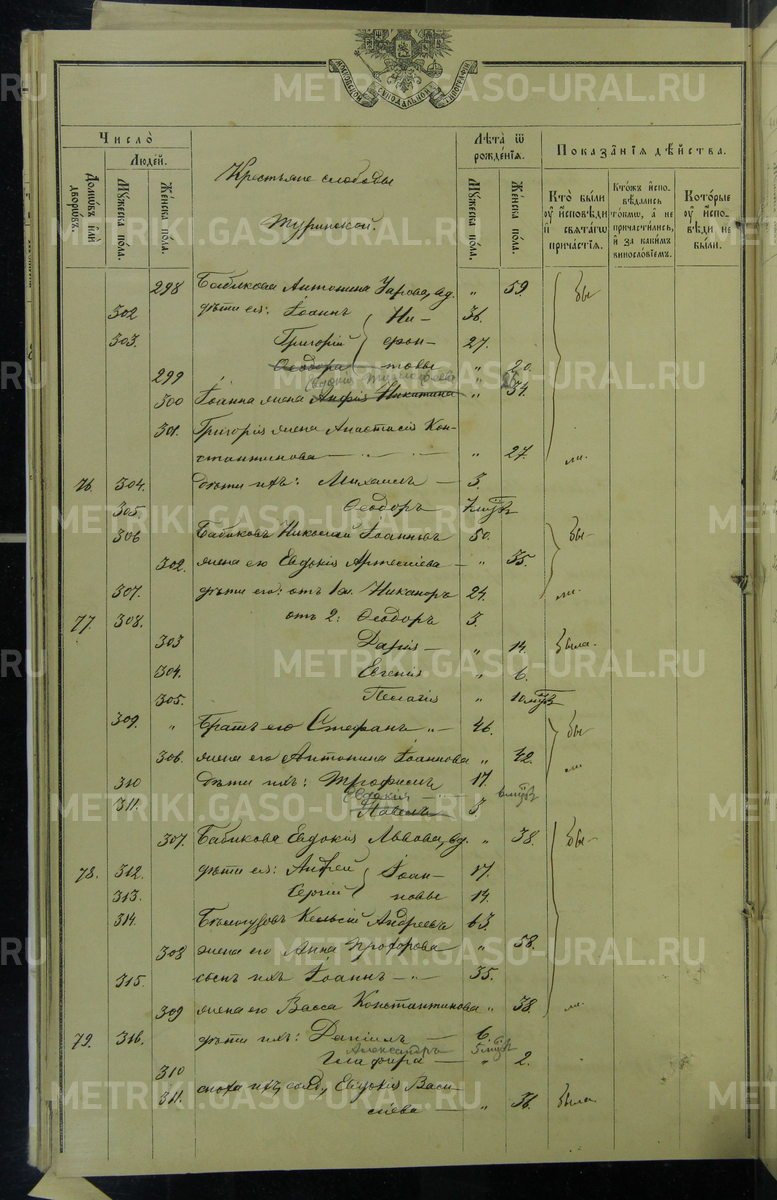 МОСКОВСКОЙ СѴНОДАЛЬНОЙ ТИПОГРАФІИ
METRIKI.GASO-URAL.RU
Число̀
Людей.
Домѡвъ и҆лѝ дворѡвъ.
Мꙋжеска по́ла.
Же́нска по́ла.
Крестьяне слободы
Туринской.
Лѣ́та ѿ рожде́нїѧ.
Мꙋжеска по́ла.
Же́нска по́ла.
Показа́нїѧ дѣ́йства.
Кто̀ бы́ли ᲂу҆ и҆́споведи и҆ свѧта́гѡ прича́стїѧ.
Кто́жъ и҆спо-вѣдались то́кмѡ, а҆ не причастились, и҆ за каки́мъ винослов́їемъ.
Кото́рые ᲂу҆ и҆спо-вѣди не бы́ли.
298 Бабикова Антонина Уарова, вд. " 59. Бы-
302 дѣти ея: Іоаннъ Ни- 36.
303. Григорій фон- 27.
299 Ѳеодора товы " 20.
300 Іоанна жена Анфія Никитина " 34.
301. Григорія жена Анастасія Кон-
стантинова " 27. ли.
76. 304. дѣти ихъ: Михаилъ 3.
305. Ѳеодоръ
306 Бабиковъ Николай Іоанновъ 50. Бы-
302. жена его Евдокія Артеміева " 35.
307. дѣти его: отъ 1 ж. Никаноръ 24. ли.
77. 308. отъ 2: Ѳеодоръ 3.
303 Дарія " 14. Была.
304. Евгенія " 6.
305. Пелагія " 10 мцъ
309. " Братъ его Стефанъ " 46. Бы-
306. жена его Антонина Іоаннова " 42. ли
310 дѣти ихъ: Трофимъ 17.
Евдокія 6 мцъ
311. Павелъ 3
307. Бабикова Евдокія Львова, вд. " 38. Бы-
78. 312. дѣти ея: Андрей Іоан- 17.
313. Сергій новы 14.
314. Андреевъ 63.
308 жена его Анна Прохорова " 58.
315. сынъ ихъ Іоаннъ " 35.
309 жена его Васса Константинова " 38. ли.
79. 316. дѣти ихъ: Даніилъ 6.
Александръ 5 мцъ
310 Глафира " 2.
311. сноха ихъ, солд., Евдокія Васи-
лiева " 36. Была.